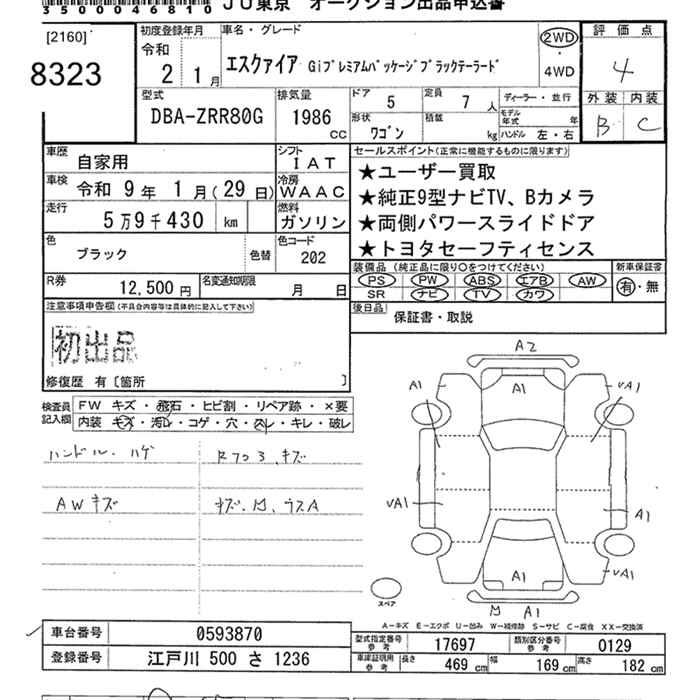 35000468 10 JU東京 オークション出品申込書
[2160]
8323
初度登録年月
令和
2 1月
車名・グレード
エスクァイア Giプレミアムパッケージブラックテーラード
2WD
・
4WD
評価点
4
外装 内装
B C
型式
DBA-ZRR80G
排気量
1986
CC
ドア
5
定員
7 人
形状
ワゴン
積載
kg
ディーラー・並行
モデル年式 年
ハンドル 左・右
車歴
自家用
シフト
I AT
車検
令和 9年 1月(29日)
冷房
WAAC
走行
5万9千430 km
燃料
ガソリン
色
ブラック
色替
色コード
202
R券
12,500円
名変通知期限
月 日
セールスポイント(正常に機能するものに限ります)
★ユーザー買取
★純正9型ナビTV、Bカメラ
★両側パワースライドドア
★トヨタセーフティセンス
装備品 (純正品に限り○をつけてください)
PS PW ABS エアB AW
SR ナビ TV カワ
新車保証書
有・無
後日品
保証書・取説
注意事項申告欄(不具合内容等は具体的に記入して下さい)
初出品
修復歴 有〔箇所 〕
検査員記入欄
FW キズ・飛石・ヒビ割・リペア跡・×要
内装 キズ・汚レ・コゲ・穴・スレ・キレ・破レ
ハンドル ハゲ
AW キズ
A2
A1
A1
vA1
vA1
A1
A1
vA1
A1
スペア
A-キズ E-エクボ U-凹み W-補修跡 S-サビ C-腐食 XX-交換済
車台番号 0593870
登録番号 江戸川 500 さ 1236
型式指定番号 参考 17697
類別区分番号 参考 0129
車庫証明用 参考 長さ 469 cm 幅 169 cm 高さ 182 cm